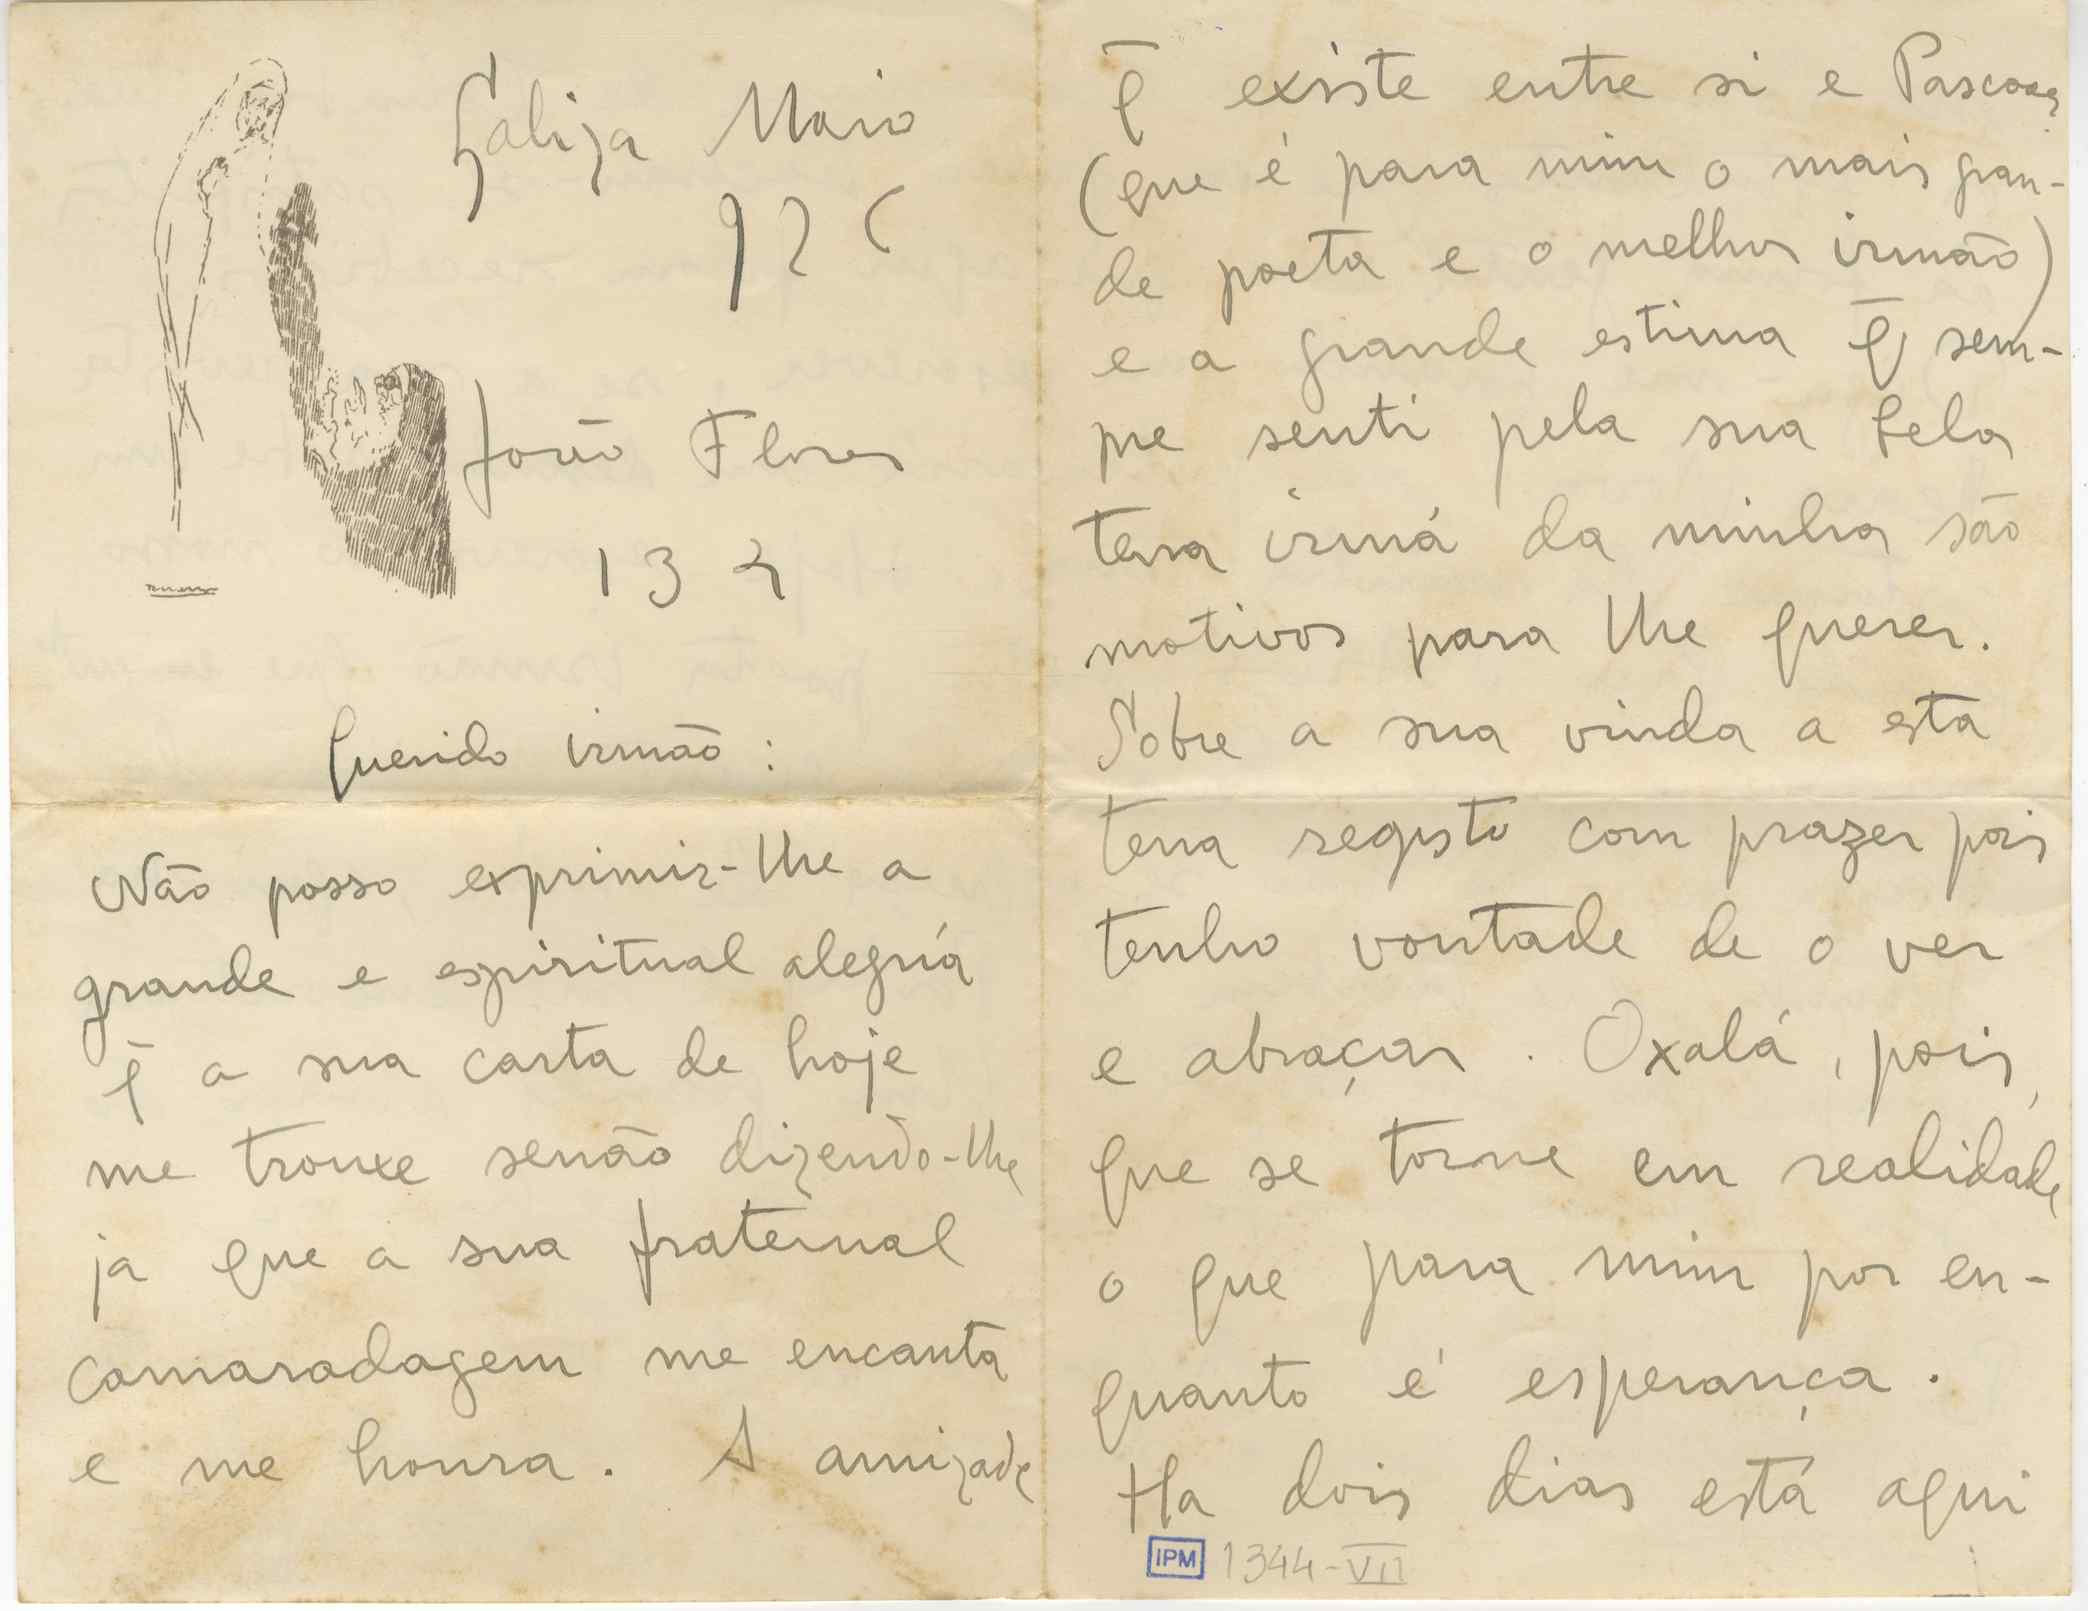 Galiza Maio
926
João Flores
132
Querido irmão:
Não posso exprimir-lhe a
grande e espiritual alegría
q̄ a sua carta de hoje
me trouxe senão dizendo-lhe
ja que a sua fraternal
camaradagem me encanta
e me honra. A amizade
q̄ existe entre si e Pascoaes
(que é para mim o mais gran-
de poeta e o melhor irmão)
e a grande estima q̄ sem-
pre senti pela sua bela
terra irmá da minha são
motivos para lhe querer.
Sobre a sua vinda a esta
terra registo com prazer pois
tenho vontade de o ver
e abraçar. Oxalá, pois,
que se torne em realidade
o que para mim por en-
quanto é esperança.
Ha dois dias está aqui
IPM 1344-VII